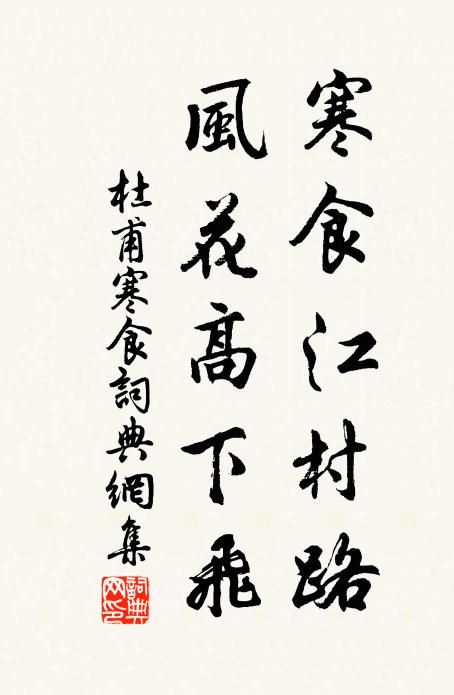 寒食江村路
風花高下飛
杜甫寒食詞典網集
詞典网印